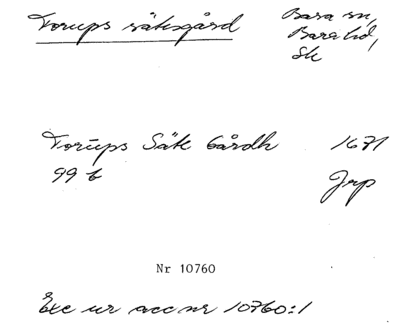 Torups säksgård Bara sn,
Bara hd,
Sk
Torups Säk Gårdh 1671
99 b Jrp
Nr 10760
Exc ur acc nr 10760:1